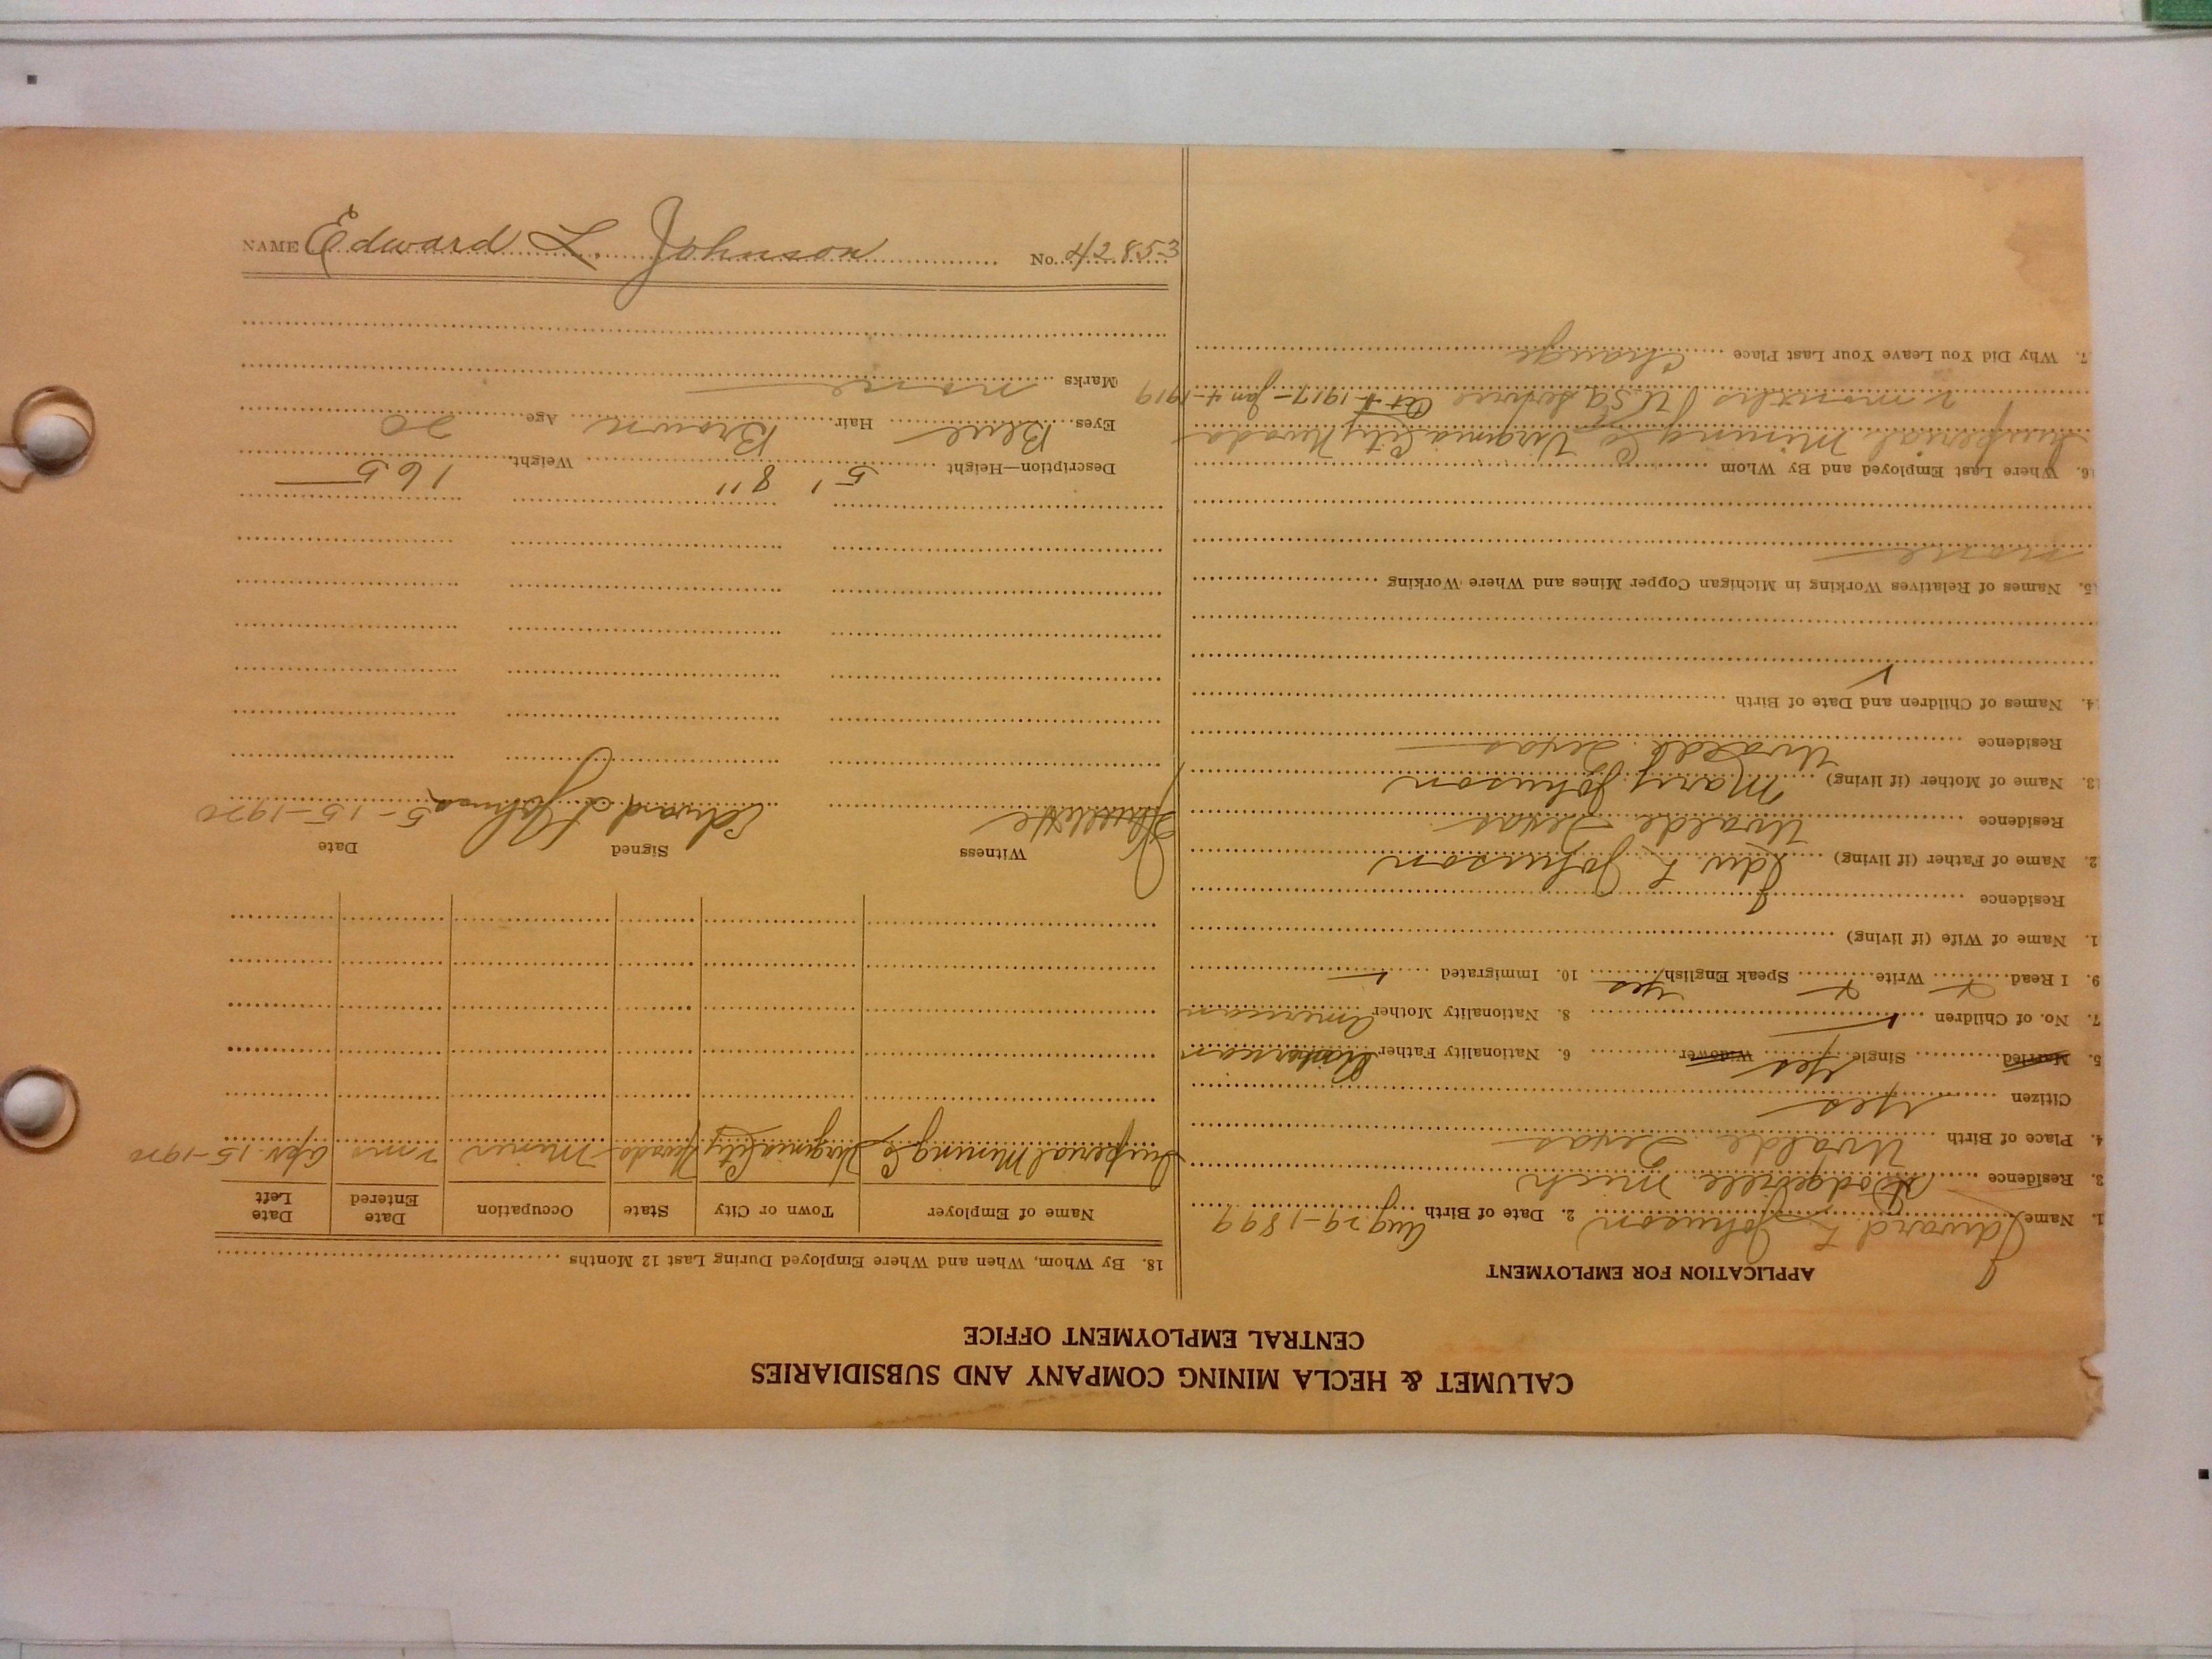 CALUMET & HECLA MINING COMPANY AND SUBSIDIARIES
CENTRAL EMPLOYMENT OFFICE
APPLICATION FOR EMPLOYMENT
1. Name Edward L. Johnson 2. Date of Birth Aug 29-1899
3. Residence Dodgeville Mich
4. Place of Birth Uvalde Texas
Citizen Yes
5. Married Single Yes Widower 6. Nationality Father American
7. No. of Children 8. Nationality Mother American
9. I Read X Write X Speak English Yes 10. Immigrated
1. Name of Wife (if living)
Residence
2. Name of Father (if living) Edw L Johnson
Residence Uvalde Texas
13. Name of Mother (if living) Mary Johnson
Residence Uvalde Texas
14. Names of Children and Date of Birth
15. Names of Relatives Working in Michigan Copper Mines and Where Working
none
16. Where Last Employed and By Whom
Imperial Mining Co Virginia City Nevada
2 months USA Service Oct 1-1917-Jan 4-1919
7. Why Did You Leave Your Last Place Change
18. By Whom, When and Where Employed During Last 12 Months
Name of Employer Town or City State Occupation Date Entered Date Left
Imperial Mining Co Virginia City Nevada Miner 2 ms Apr. 15-1920
Witness Signed Date
Edward L. Johnson 5-15-1920
Description—Height 5' 8" Weight 165
Eyes Blue Hair Brown Age 20
Marks none
NAME Edward L. Johnson No. 42853